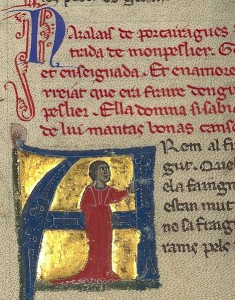 Nazalais de porcairagues
trada de monpeslier. G
et enseignada. Et enamore
rreiat que era fraire den gui
peslier. Ella domna si sabia
de lui mantas bonas canso
Rem al fr
gut. Que
e la faing
estan mut
no sa fraing
rame pel